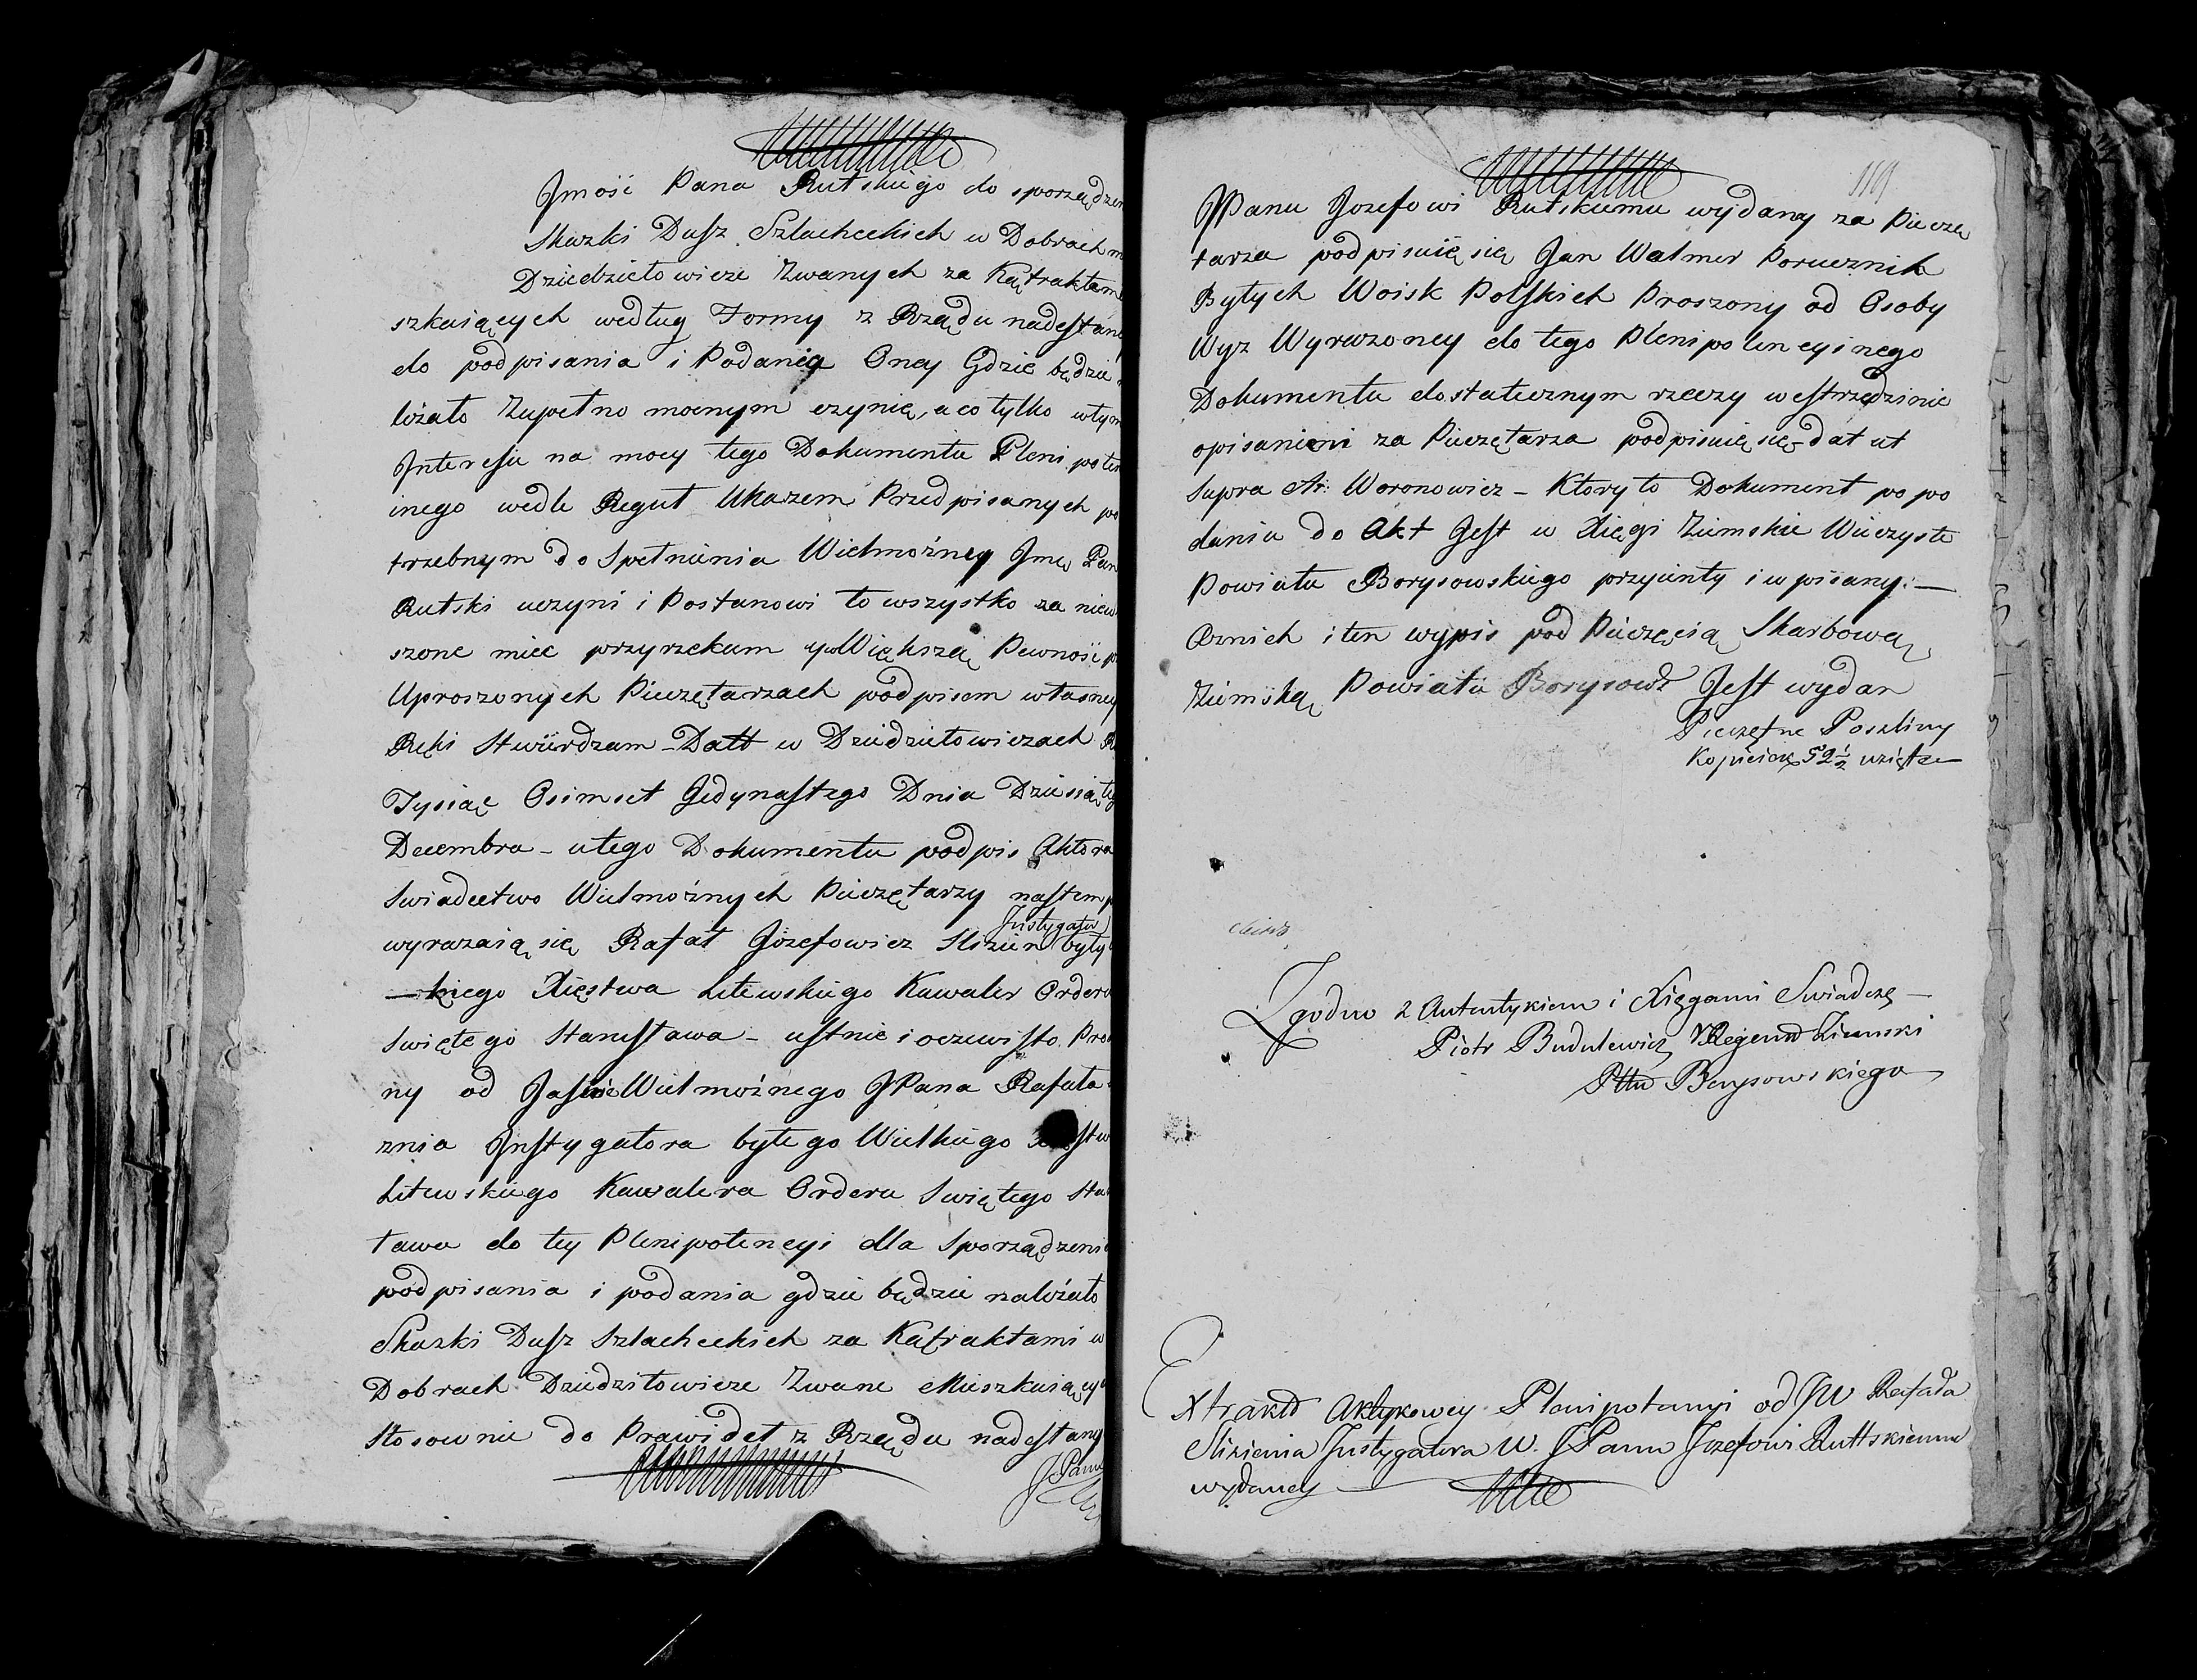 Jmość Pana Rutskiego do sporządzen
Skazki Dusz Szlacheckich w Dobrach m
Dziedziełowicze Zwanych za Kątraktam
szkaiących według Formy z Rządu nadesłane
do podpisania i Podania Oney Gdzie będzie
leżało Zupełno mocnym czynię, a co tylko w tym
Jnteresie na mocy tego Dokumentu Pleni poten
inego wedle Reguł Ukazem Przedpisanych po
trzebnym do Spełnienia Wielmożney Jmę Pan
Rutski uczyni i Postanowi to wszystko za niew
szone miec przyrzekam y Większą Pewność p
Uproszonych Pieczętarzach podpisem własney
Ręki Stwierdzam - Datt w Dziedziełowiczach R
Tysiąc Osimset Jedynastego Dnia Dziesiąteg
Decembra - u tego Dokumentu podpis Aktora
Swiadectwo Wielmożnych Pieczętarzy nastemp
Justygator
wyrazaią się Rafał Józefowicz Slizien były
kiego Xięstwa Litewskiego Kawaler Orderu
Swiętego Stanisława - ustnie i oczewisto Pro
ny od JasnieWielmożnego JPana Rafała
znia Jnstygatora byłego Wielkiego stw
Litewskiego Kawalera Orderu Swiętego Sta
ława do tey Plenipotencyi dla Sporządzeni
podpisania i podania gdzie będzie należało
Skazki Dusz Szlacheckich za Kątraktami w
Dobrach Dziedziłowicze Zwane Mieszkaiący
Stosownie do Prawideł z Rządu nadesłany
JPanu
1161
JPanu Jozefowi Rutskiemu wydany za Pieczę
tarza podpisuię się Jan Walmer Porucznik
Byłych Woisk Polskich Proszony od Osoby
Wyz Wyrazoney do tego Plenipolencyinego
Dokumentu dostatecznym rzeczy westrzedzinie
opisaniem za Pieczętarza podpisuię się - dat ut
Supra Woronowicz - Ktory to Dokument po po
daniu do Akt Jest w Xięgi Ziemskie Wieczyste
Powiatu Borysowskiego przyienty i w pisany: -
Oznich i ten wypis pod Pieczęcią Skarbową
Ziemską Powiatu Borysows Jest wydan
Pieczętne Poszliny
Kopieiek 52½ wzięte
Zgodno z Autentykiem i Xięgami Swiadczę -
Piotr Budulewicz Regent Ziemski
Pttu Borysowskiego
Extrakt Aktykowey Plenipotencyi od JW Rafała
Slizienia Justygatora W. JPanu Jozefowi Ruttskiemu
wydaney